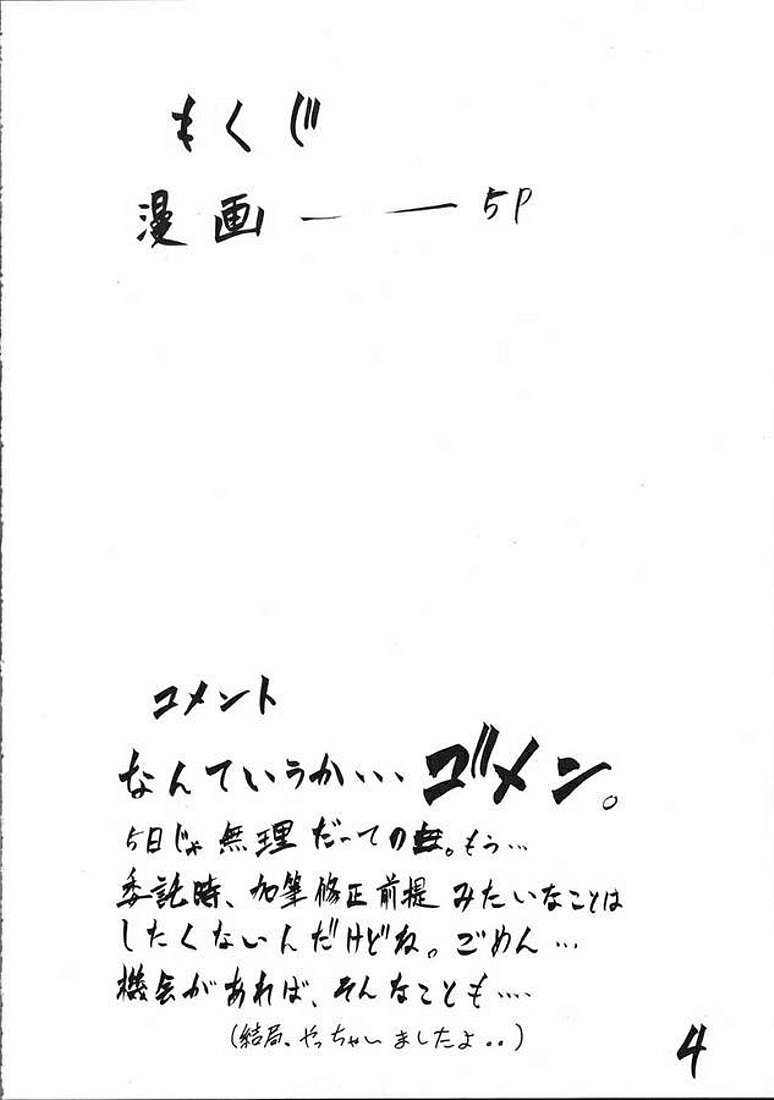 もくじ
漫画 ― ― 5P
コメント
なんていうか… ゴメン。
5日じゃ無理だっての。もう…
委託時、加筆修正前提 みたいなことは
したくないんだけどね。ごめん…
機会があれば、そんなことも….
(結局、やっちゃいましたよ..)
4